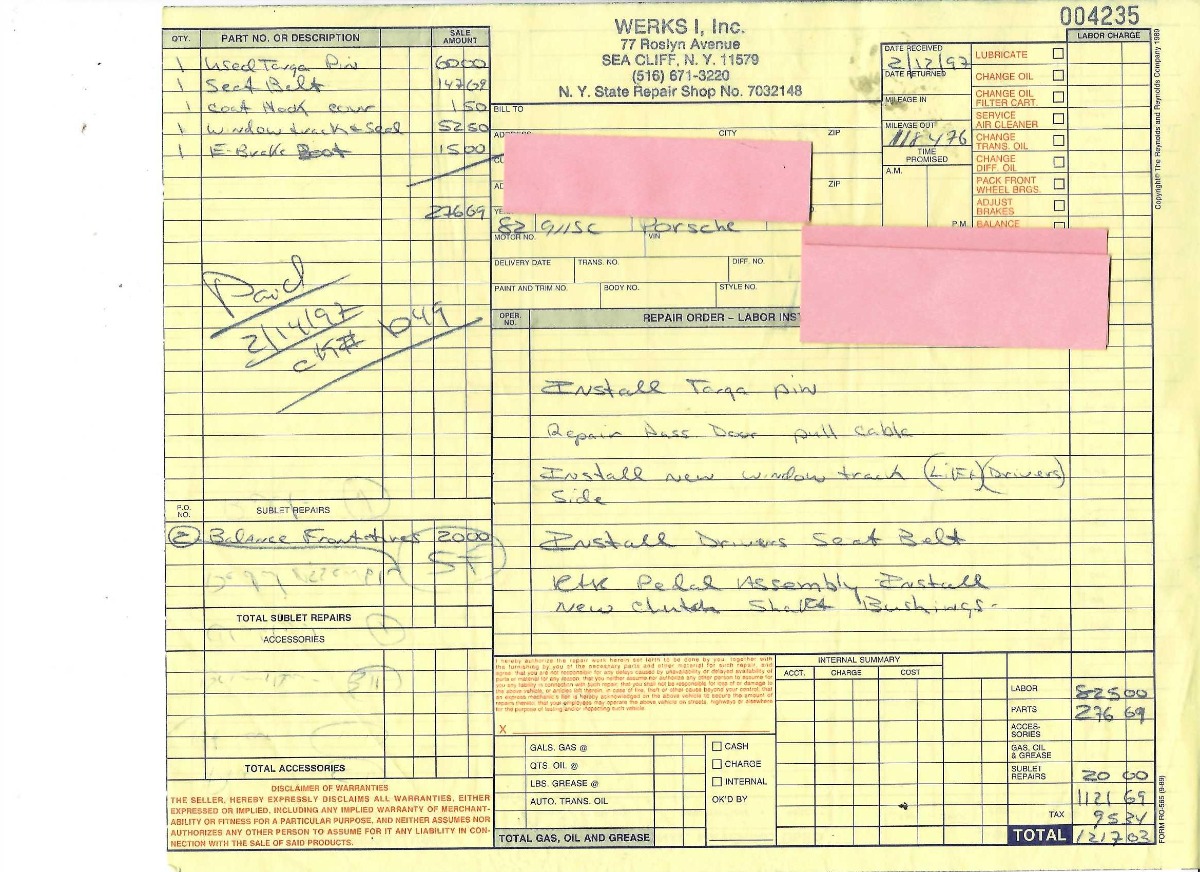 004235
WERKS I, Inc.
77 Roslyn Avenue
SEA CLIFF, N. Y. 11579
(516) 671-3220
N. Y. State Repair Shop No. 7032148
QTY. PART NO. OR DESCRIPTION SALE AMOUNT
1 Used Targa Pin 6000
1 Seat Belt 14769
1 Coat Hook cover 150
1 window track & Seal 5250
1 E-Brake Boot 1500
27669
Paid
2/14/97
CK# 1049
P.O. NO. SUBLET REPAIRS
2 Balance Front tires 2000
ST
TOTAL SUBLET REPAIRS
ACCESSORIES
TOTAL ACCESSORIES
DISCLAIMER OF WARRANTIES
THE SELLER, HEREBY EXPRESSLY DISCLAIMS ALL WARRANTIES, EITHER
EXPRESSED OR IMPLIED, INCLUDING ANY IMPLIED WARRANTY OF MERCHANT-
ABILITY OR FITNESS FOR A PARTICULAR PURPOSE, AND NEITHER ASSUMES NOR
AUTHORIZES ANY OTHER PERSON TO ASSUME FOR IT ANY LIABILITY IN CON-
NECTION WITH THE SALE OF SAID PRODUCTS.
BILL TO
ADDRESS CITY ZIP
ZIP
82 911SC Porsche
MOTOR NO. VIN
DELIVERY DATE TRANS. NO. DIFF. NO.
PAINT AND TRIM NO. BODY NO. STYLE NO.
DATE RECEIVED
2/12/97
DATE RETURNED
MILEAGE IN
MILEAGE OUT
118476
TIME PROMISED
A.M.
P.M.
LABOR CHARGE
LUBRICATE
CHANGE OIL
CHANGE OIL FILTER CART.
SERVICE AIR CLEANER
CHANGE TRANS. OIL
CHANGE DIFF. OIL
PACK FRONT WHEEL BRGS.
ADJUST BRAKES
BALANCE
Copyright© The Reynolds and Reynolds Company 1989
OPER. NO. REPAIR ORDER – LABOR INS
Install Targa pin
Repair Pass Door pull cable
Install new window track (Left) (Drivers)
Side
Install Drivers Seat Belt
R+R Pedal Assembly Install
New Clutch Shaft Bushings-
I hereby authorize the repair work herein set forth to be done by you, together with
the furnishing by you of the necessary parts and other material for such repair, and
agree; that you are not responsible for any delays caused by unavailability or delayed availability of
parts or material for any reason; that you neither assume nor authorize any other person to assume for
you any liability in connection with such repair; that you shall not be responsible for loss of or damage to
the above vehicle, or articles left therein, in case of fire, theft or other cause beyond your control; that
an express mechanic's lien is hereby acknowledged on the above vehicle to secure the amount of
repairs thereto; that your employees may operate the above vehicle on streets, highways or elsewhere
for the purpose of testing and/or inspecting such vehicle.
X
GALS. GAS @
QTS. OIL @
LBS. GREASE @
AUTO. TRANS. OIL
TOTAL GAS, OIL AND GREASE
CASH
CHARGE
INTERNAL
OK'D BY
INTERNAL SUMMARY
ACCT. CHARGE COST
LABOR 82500
PARTS 276 69
ACCES-SORIES
GAS, OIL & GREASE
SUBLET REPAIRS 20 00
1121 69
TAX 9534
TOTAL 121703
FORM RO-565 (8-89)